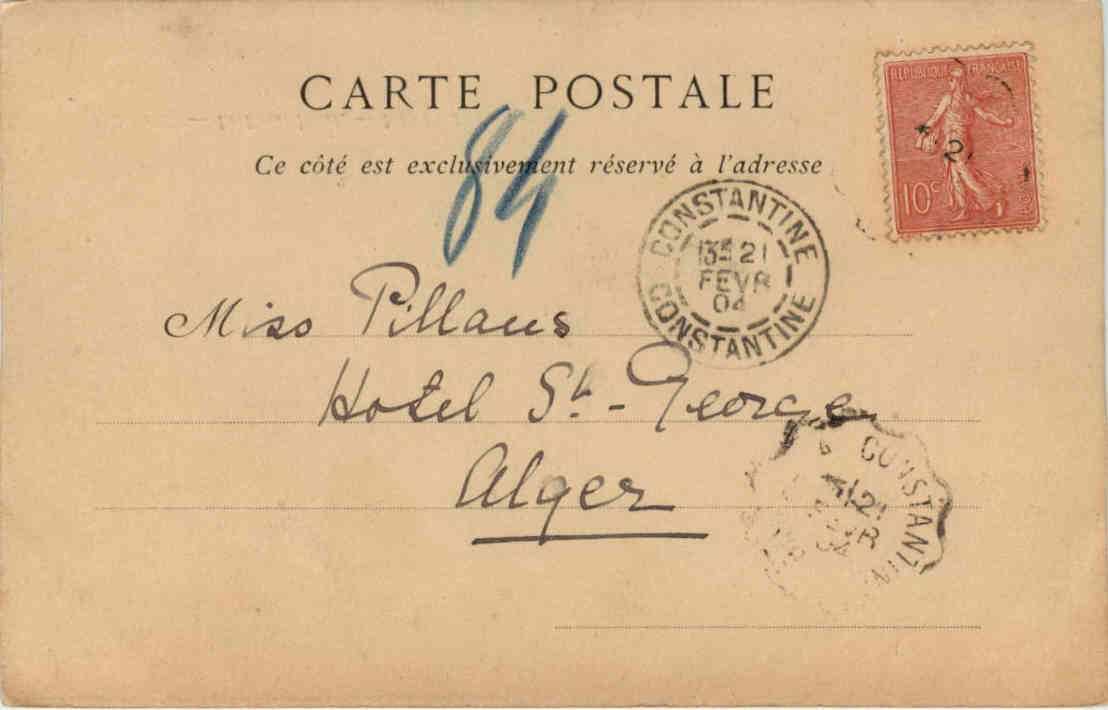 CARTE POSTALE
Ce côté est exclusivement réservé à l'adresse
RÉPUBLIQUE FRANÇAISE
10c
84
CONSTANTINE
21
FEVR
04
CONSTANTINE
Miss Pillans
Hotel St. George
Alger
CONSTANTIN
21